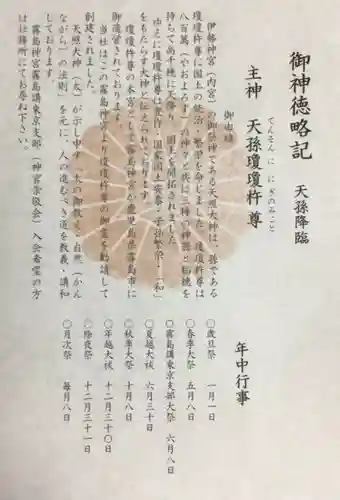 御神徳略記
天孫降臨
主神 天孫瓊瓊杵尊
てんそん に にぎのみこと
御由緒
伊勢神宮(内宮)の御祭神である天照大神は、孫である
瓊瓊杵尊に国土の統治、繁栄を命じました。瓊瓊杵尊は
八百萬(やおよろず)の神々と供に三種の神器と稲穂を
持ちて高千穂に天降り、国土を開拓されました。
ゆえに瓊瓊杵尊は豊穣・国家国土安泰・子孫繁栄・「和」
をもたらす大神と伝えられております。
瓊瓊杵尊の本宮として霧島神宮が鹿児島県霧島市に
御鎮営されております。
当社はこの霧島神宮より瓊瓊杵尊の御霊を勧請して
創建されました。
天照大神(太)が示し申す、太の御教え・自然(かん
ながら)の法則」を元に、人の進むべき道を教義・講和
しております。
霧島神宮霧島講東京支部(神宮崇敬会)入会希望の方
は社務所にてお尋ね下さい。
年中行事
〇歳旦祭 一月一日
〇春季大祭 五月八日
〇霧島講東京支部大祭 六月八日
〇夏越大祓 六月三十日
〇秋季大祭 十月八日
〇年越大祓 十二月三〇日
〇除夜祭 十二月三十一日
〇月次祭 毎月八日